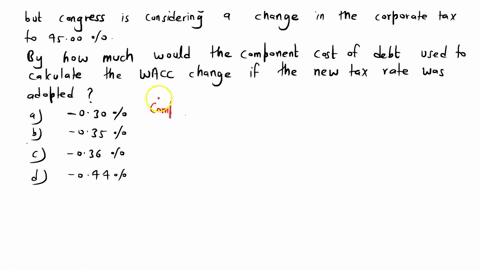 but congress is considering a change in the corporate tax
to 45.00 %.
By how much would the component cost of debt used to
calculate the WACC change if the new tax rate was
adopted ?
a) -0.30 %
Com
b) -0.35 %
c) -0.36 %
d) -0.44 %